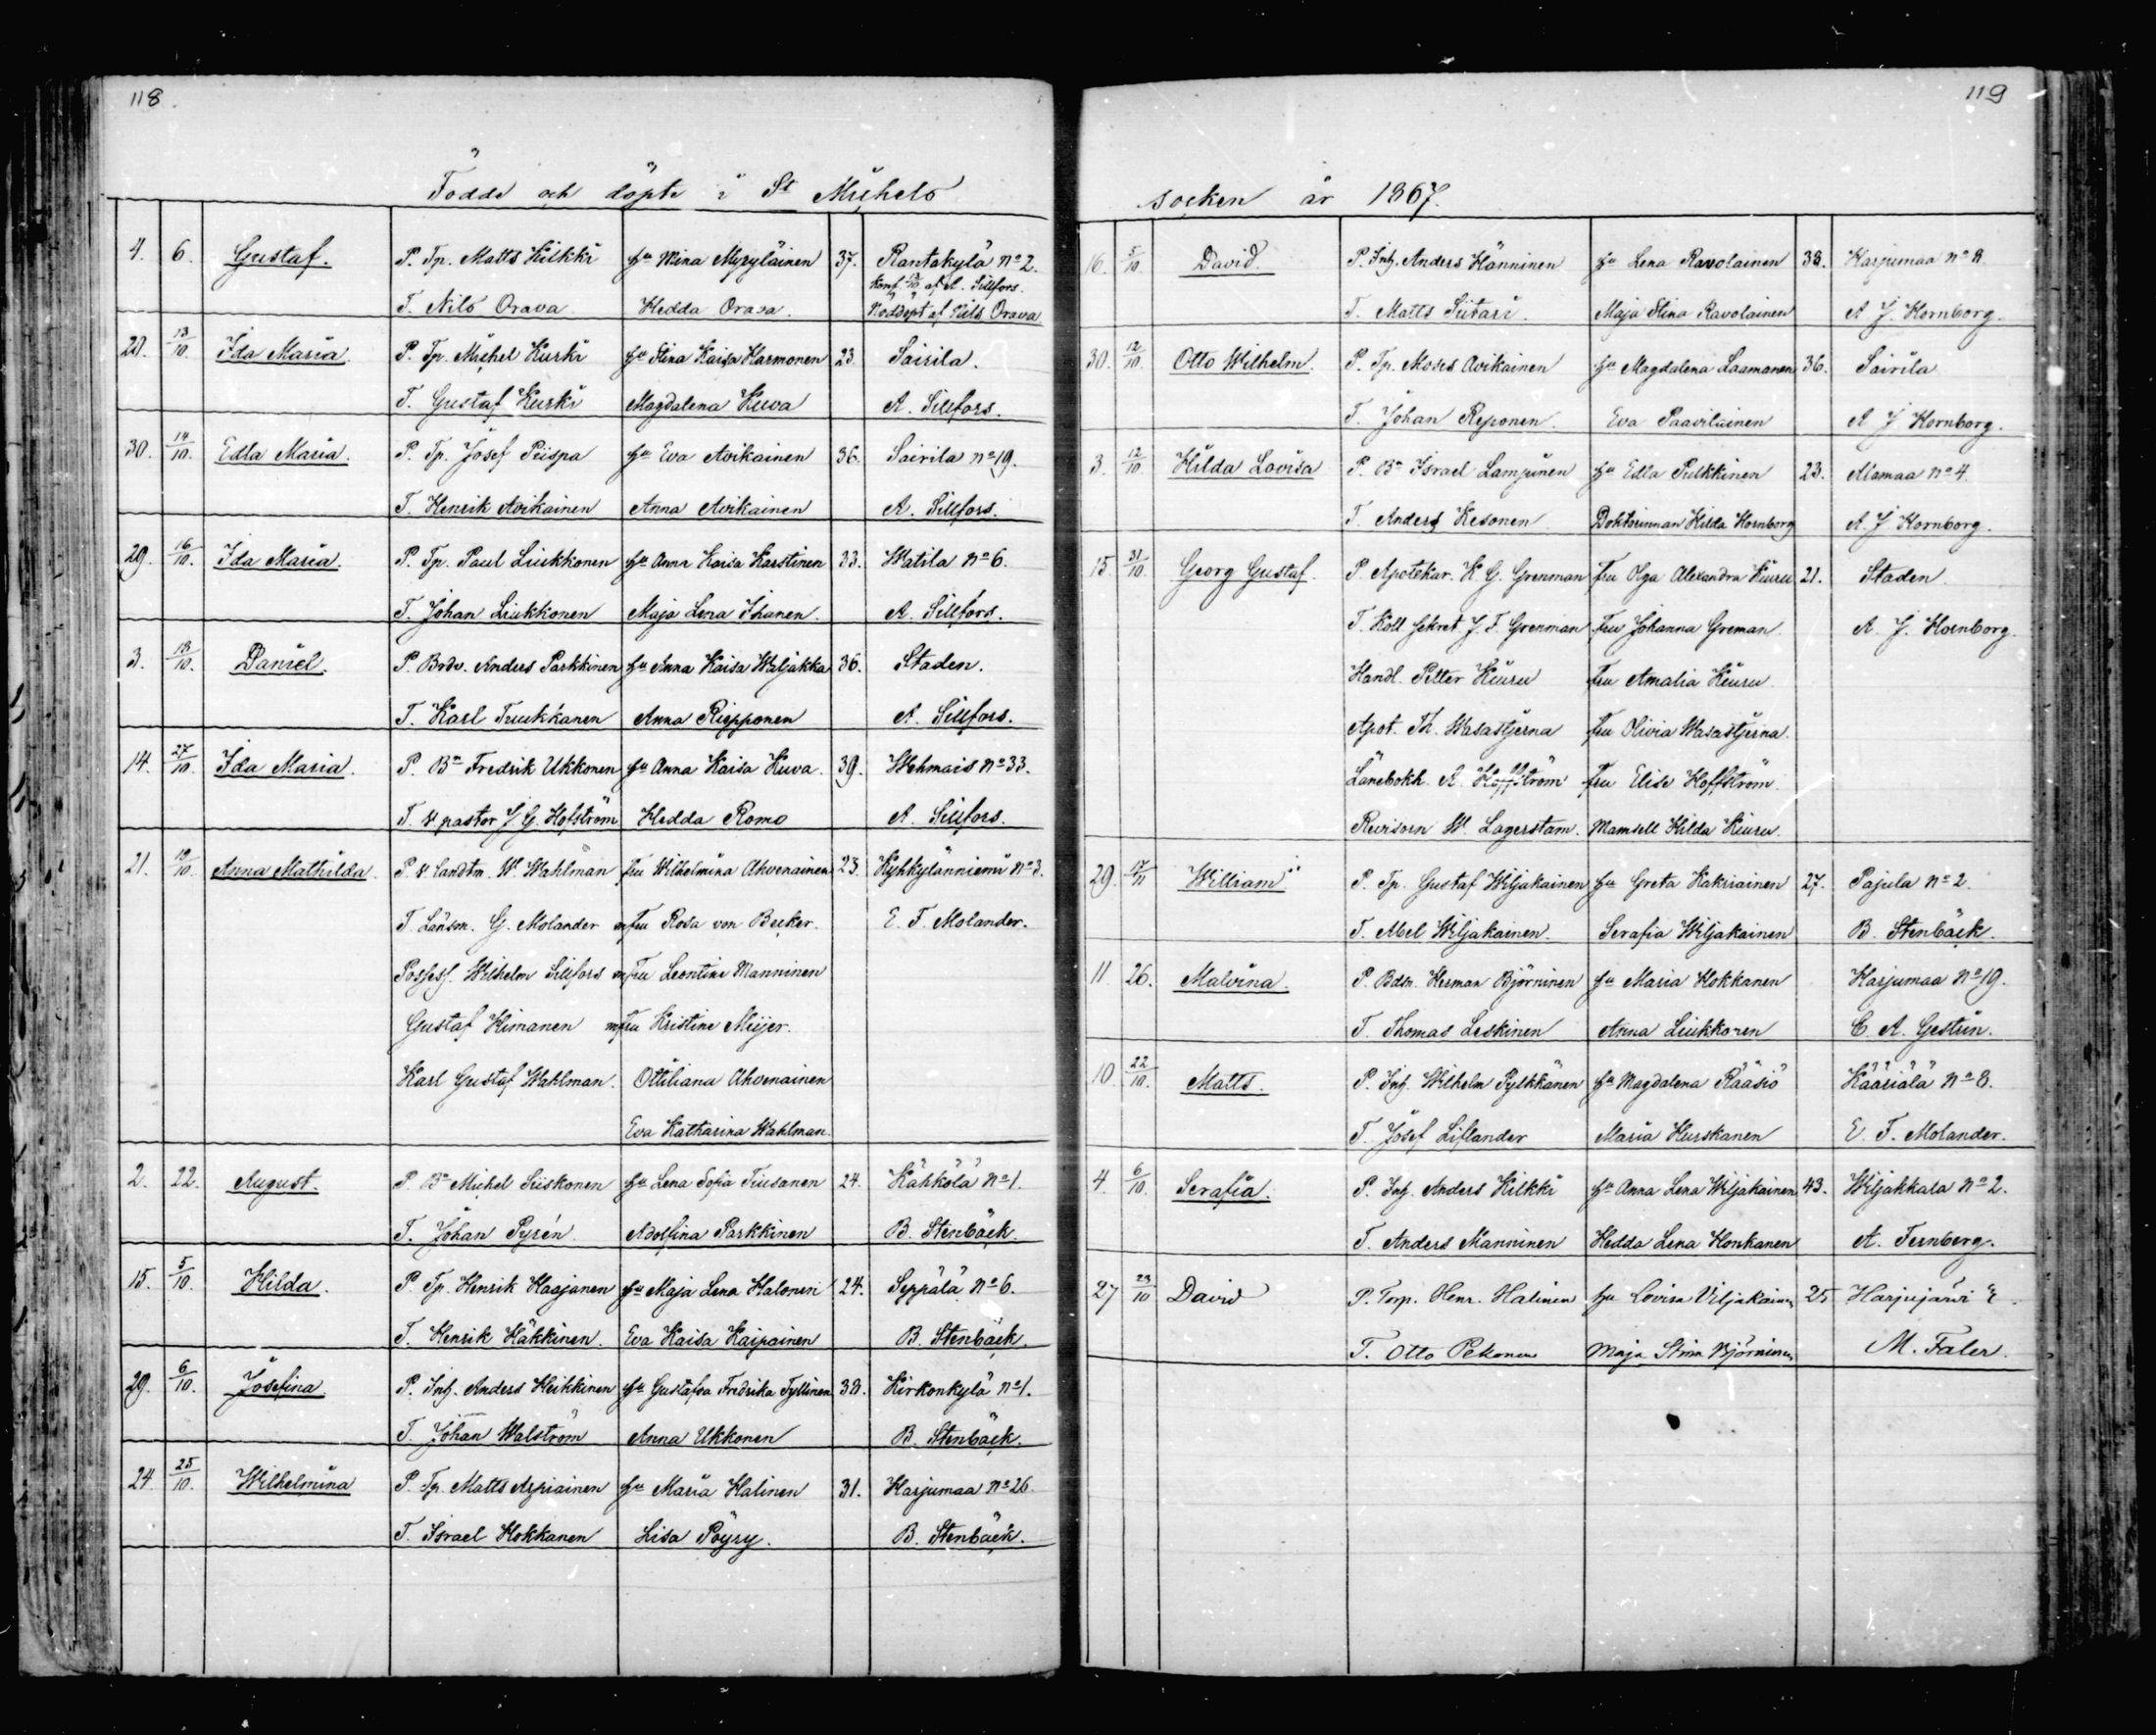 118.
Födde och döpte i St Michels
4. 6. Gustaf. P. Tp. Matts Hilkki hu Mina Myryläinen 37. Rantakylä No 2.
Konf. 13/10 af A. Sillfors.
T. Nils Orava Hedda Orava. Nöddöpt af Nils Orava
13/10. Ida Maria. P. Tp. Michel Kurki hu Stina Kaisa Harmonen 23. Sairila.
T. Gustaf Kurki Magdalena Kuva A. Sillfors.
30. 14/10. Edla Maria. P. Tp. Josef Piispa hu Eva Avikainen 36. Sairila No 19.
T. Henrik Avikainen Anna Avikainen A. Sillfors.
29. 16/10. Ida Maria. P. Tp. Paul Liukkonen hu Anna Kaisa Karstinen 33. Watila No 6.
T. Johan Liukkonen Maja Lena Ihanen. A. Sillfors.
3. 13/10. Daniel. P. Brdv. Anders Parkkinen hu Anna Kaisa Waljakka 36. Staden.
T. Karl Truukkanen Anna Riepponen A. Sillfors.
14. 27/10. Ida Maria. P. Bn Fredrik Ukkonen hu Anna Kaisa Kuva. 39. Wehmais No 33.
T. v pastor J. G. Hofström Hedda Romo A. Sillfors.
21. 19/10. Anna Mathilda. P. v. Landtm. W. Wahlman fru Wilhelmina Ahvenainen 23. Kyhkylänniemi No 3.
T. Länsm. G. Molander m fru Rosa von Becker. E. F. Molander.
Possess. Wilhelm Sillfors m fru Leontine Manninen
Gustaf Himanen m fru Kristine Meijer.
Karl Gustaf Wahlman. Ottiliana Ahvenainen
Eva Katharina Wahlman.
2. 22. August. P. Bn Michel Siiskonen hu Lena Sofia Tiusanen 24. Kähkölä No 1.
T. Johan Pyrén. Adolfina Parkkinen B. Stenbäck.
15. 5/10. Hilda. P. Tp. Henrik Haajanen hu Maja Lena Halonen 24. Seppälä No 6.
T. Henrik Häkkinen. Eva Kaisa Kaipainen B. Stenbäck.
29. 6/10. Josefina P. Inh. Anders Heikkinen hu Gustafva Fredrika Tyllinen 38. Kirkonkylä No 1.
T. Johan Walström Anna Ukkonen B. Stenbäck.
24. 25/10. Wilhelmina P. Tp. Matts Arpiainen hu Maria Halinen 31. Harjumaa No 26.
T. Israel Hokkanen Lisa Pöyry. B. Stenbäck.
119
socken år 1867.
16. 5/10. David. P. Inh. Anders Hänninen hu Lena Ravolainen 38. Harjumaa No 8
T. Matts Siitari. Maja Stina Ravolainen A. J. Hornborg.
30. 12/10. Otto Wilhelm. P. Tp. Moses Avikainen hu Magdalena Laamanen 36. Sairila
T. Johan Reponen. Eva Paavilainen A J Hornborg.
3. 12/10. Hilda Lovisa P. Bn Israel Lampinen hu Edla Pulkkinen 23. Alamaa No 4.
T. Anders Kesonen Doktorinnan Hilda Hornborg A. J Hornborg.
15. 31/10. Georg Gustaf. P. Apotekar. K. G. Grenman fru Olga Alexandra Kiuru 21. Staden
T. Koll Sekret. J. F. Grenman fru Johanna Greman. A. J. Hornborg.
Handl. Petter Kiuru fru Amalia Kiuru.
Apot. Th. Wasastjerna fru Olivia Wasastjerna.
Länebokh. A. Hoffström fru Elise Hoffström.
Revisorn W. Lagerstam. Mamsell Hilda Kiuru.
29. 17/11 William P. Tp. Gustaf Wiljakainen hu Greta Kakriainen 27. Pajula No 2.
T. Abel Wiljakainen. Serafia Wiljakainen B. Stenbäck.
11. 26. Malvina. P. Bdsn. Herman Björninen hu Maria Hokkanen Harjumaa No 19.
T. Thomas Leskinen Anna Liukkonen C. A. Gestrin.
10. 22/10. Matts. P. Inh. Wilhelm Pylkkänen hu Magdalena Rääsiö Kääriälä No 8.
T. Josef Liflander Maria Hurskanen E. F. Molander.
4. 6/10. Serafia. P. Inh. Anders Hilkki hu Anna Lena Wiljakainen 43. Wiljakkala No 2.
T. Anders Manninen Hedda Lena Honkanen A. Ternberg.
27 23/10 David P. Torp. Henr. Halinen hu Lovisa Viljakainen 25 Harjujärvi
T. Otto Pekonen Maja Stina Björninen M. Faler.